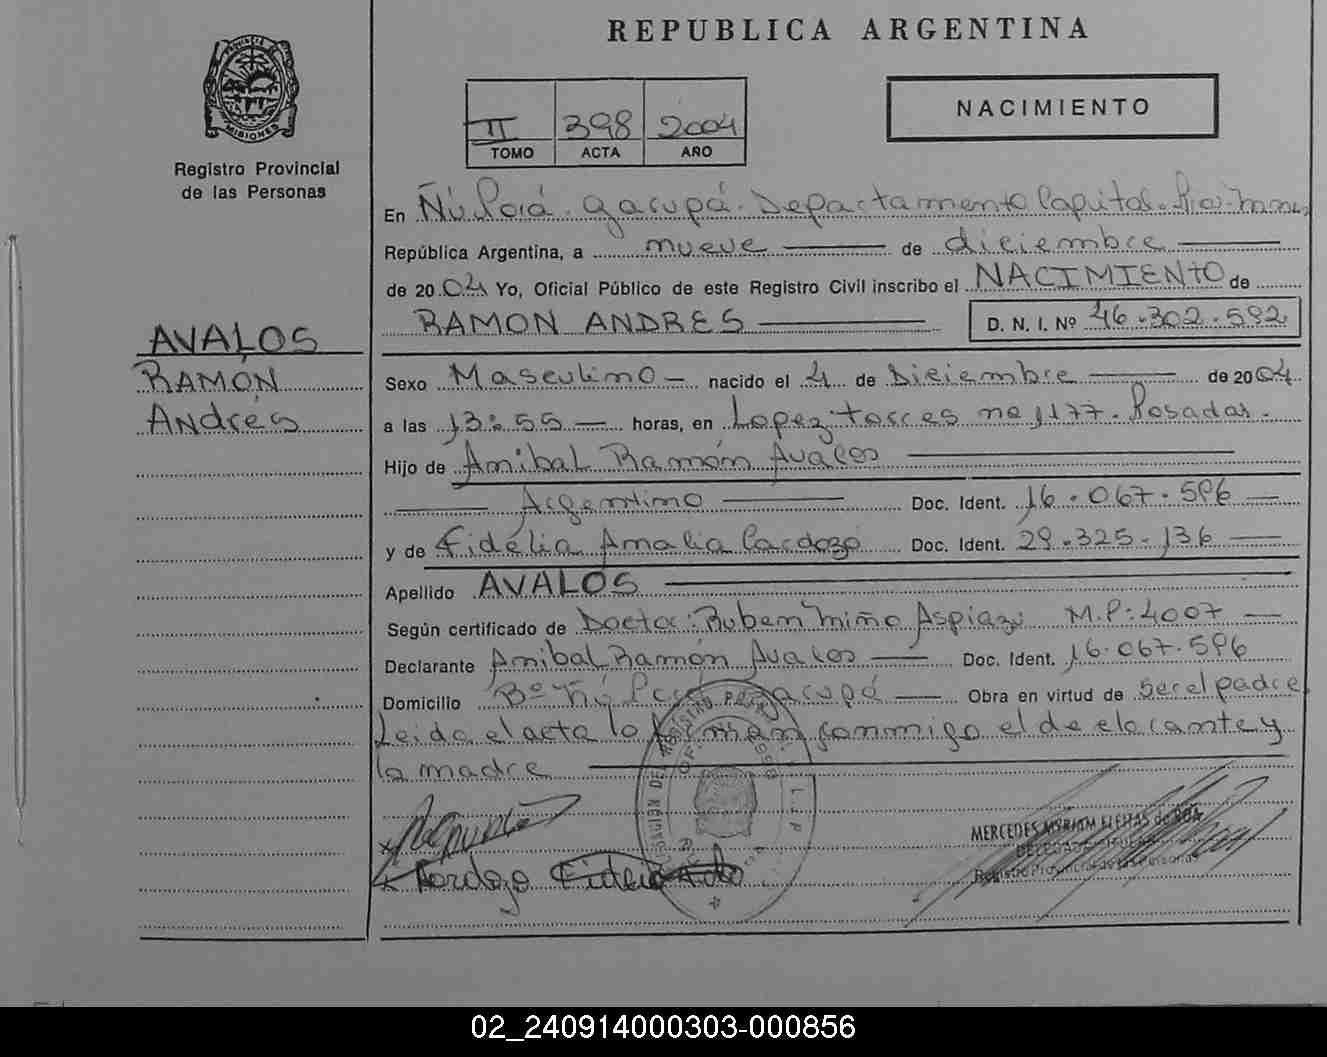 REPUBLICA ARGENTINA
PROVINCIA DE
MISIONES
Registro Provincial
de las Personas
II 398 2004
TOMO ACTA AÑO
NACIMIENTO
En Ñú Porá. Garupá. Departamento Capital.
República Argentina, a nueve de diciembre
de 2004 Yo, Oficial Público de este Registro Civil inscribo el NACIMIENTO de
RAMON ANDRES D. N. I. Nº 46.302.592
AVALOS
RAMÓN
Andrés
Sexo Masculino nacido el 4 de Diciembre de 2004
a las 13:55 horas, en Lopez torres no 1177. Posadas.
Hijo de Anibal Ramón Avalos
Argentino Doc. Ident. 16.067.596
y de Fidelia Amalia Cardozo Doc. Ident. 29.325.136
Apellido AVALOS
Según certificado de Doctor: Ruben Miño Aspiazu M.P: 4007
Declarante Anibal Ramón Avalos Doc. Ident. 16.067.596
Domicilio Bº Ñú Porá Garupá Obra en virtud de ser el padre
Leida el acta lo firman conmigo el declarante y
la madre
Cardozo Fidelia
MERCEDES MYRIAM FLEITAS de ROA
DELEGADO TITULAR
Registro Provincial de las Personas
02_240914000303-000856